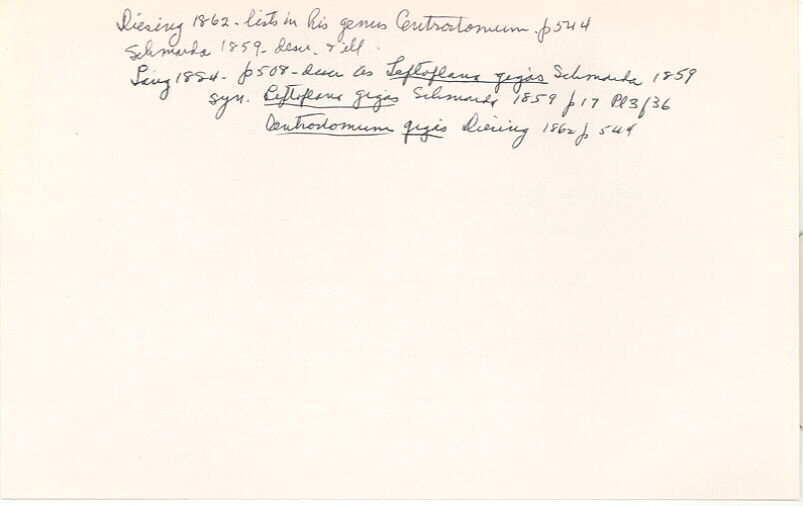 Diesing 1862 - lists in his genus Centrostomum. p 544
Schmarda 1859 - descr. & ill.
Lang 1884 - p 508 - descr as Leptoplana gigas Schmarda 1859
syn. Leptoplana gigas Schmarda 1859 p 17 Pl 3 f 36
Centrostomum gigas Diesing 1862 p 544